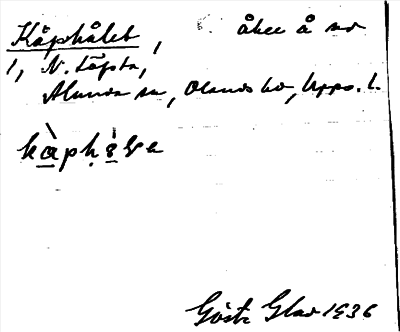 Kåphålet, åker å no
1, N. Löpsta,
Alunda sn, Olands hd, Upps. l.
kàphò̱ɭe
Gösta Glas 1936